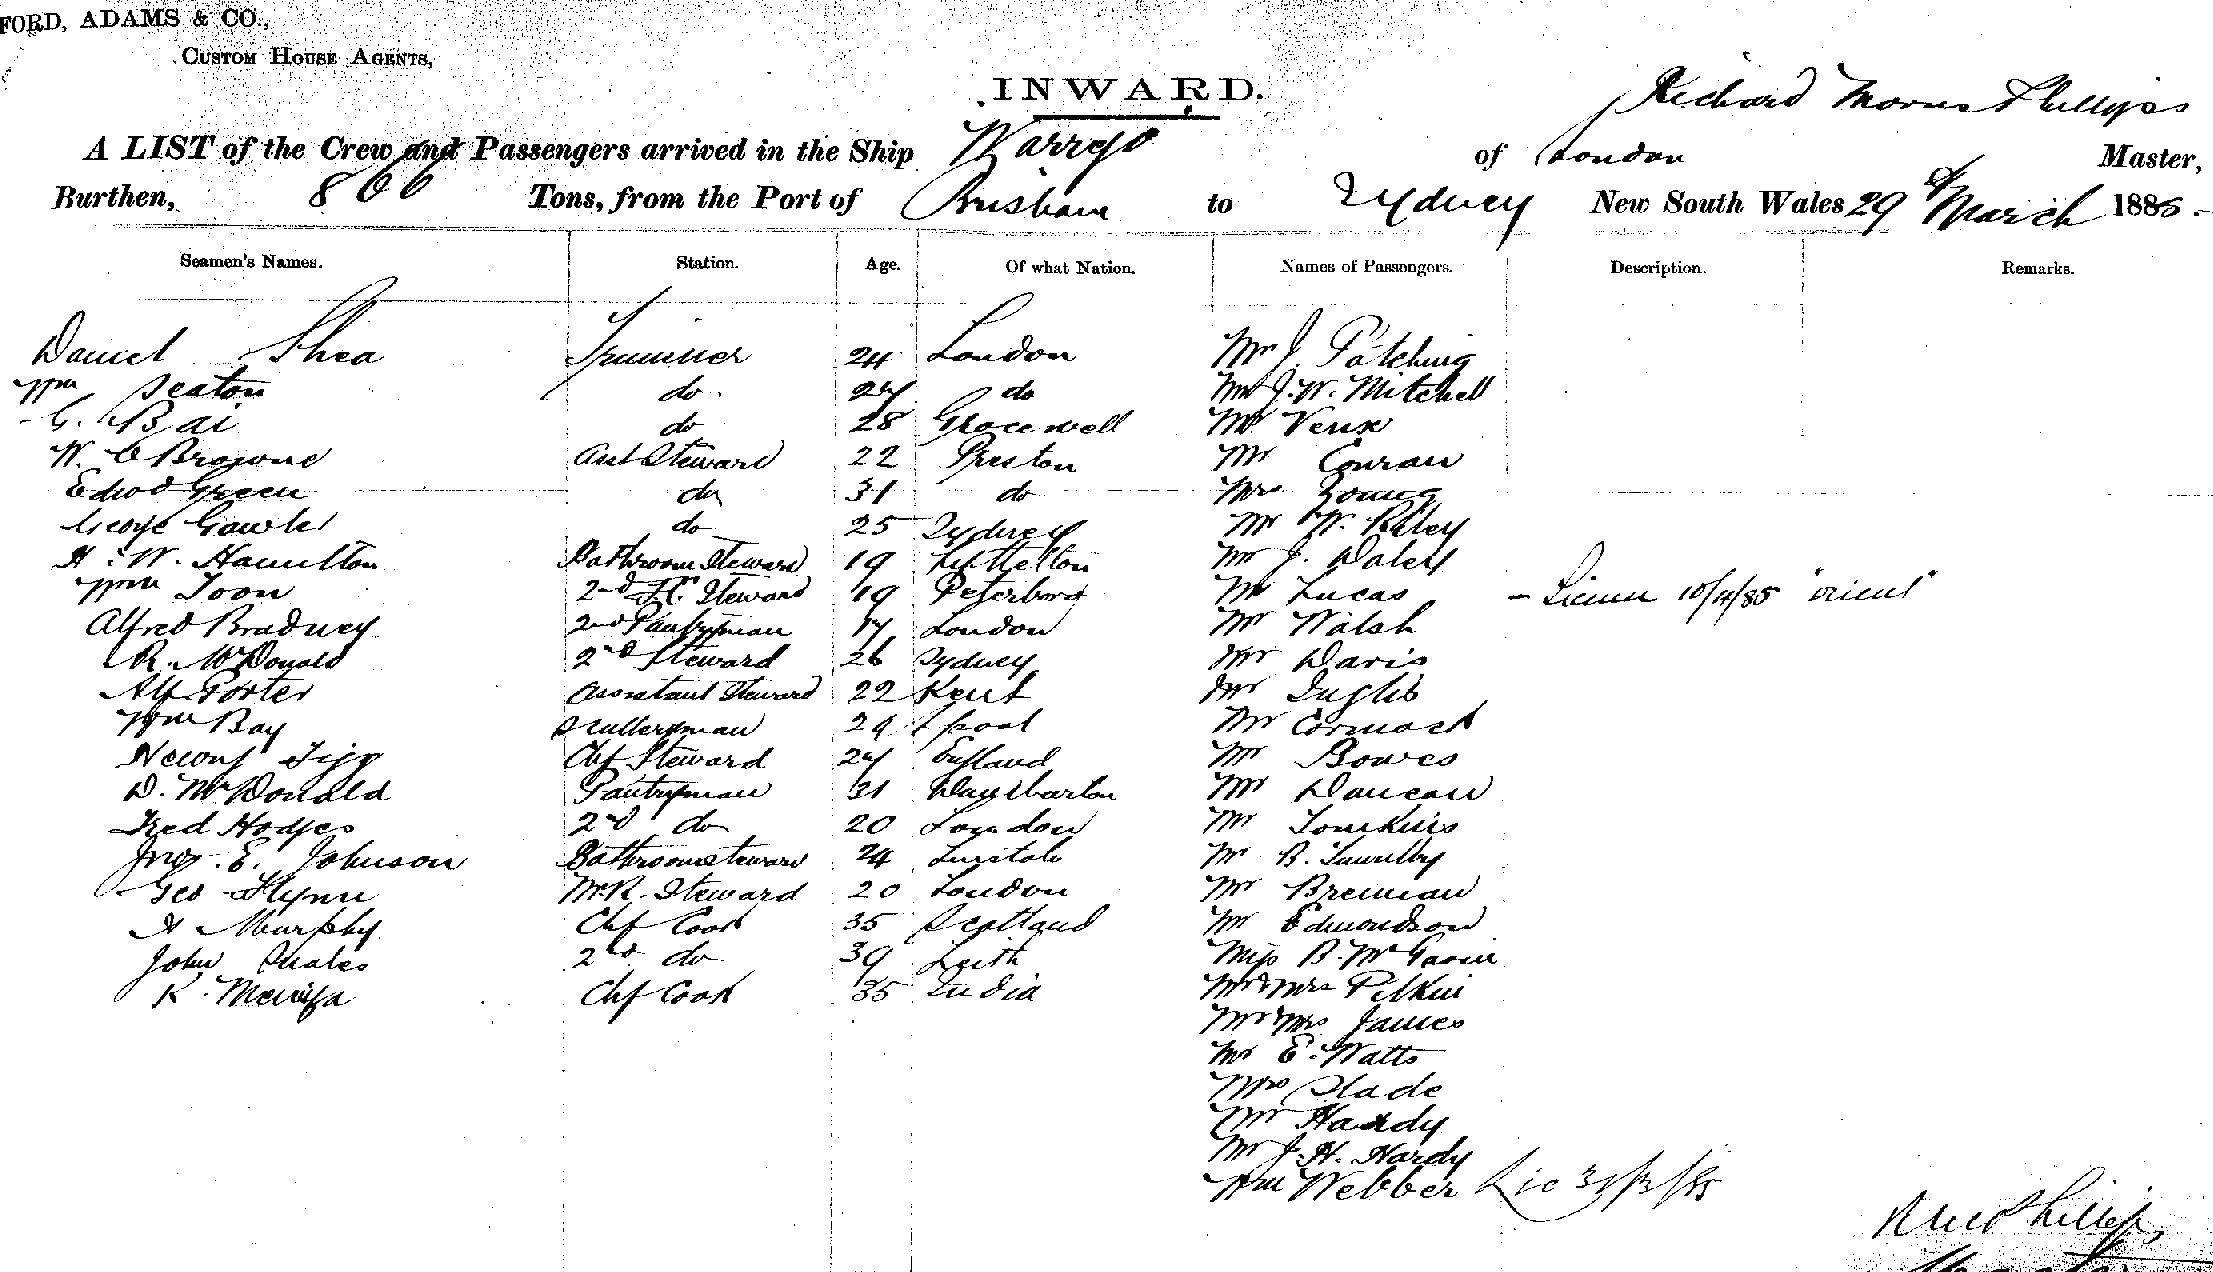 FORD, ADAMS & CO.,
CUSTOM HOUSE AGENTS,
INWARD.
Richard Morris Phillips
A LIST of the Crew and Passengers arrived in the Ship Warrego of London Master,
Burthen, 866 Tons, from the Port of Brisbane to Sydney New South Wales 29 of March 1885.
Seamen's Names. Station. Age. Of what Nation. Names of Passengers. Description. Remarks.
Daniel Shea Trimmer 24 London Mr J. Patching
Wm Seaton do 27 do Mr J. W. Mitchell
G. Bai do 28 Mr
W. C Browne Asst Steward 22 Preston Mr Conran
Edwd Green do 31 do Mrs Young
George Gawler do 25 Sydney Mr W. Riley
H. W. Hamilton Bathroom Steward 19 Lyttelton Mr J. Daley
Wm Toon 2nd Steward 19 Peterboro Mr Lucas - 10/4/85 "Orient"
Alfred Bradney 2nd Pantryman 17 London Mr Walsh
R. McDonald 2nd Steward 26 Sydney Mr Davis
Alf Porter Assistant Steward 22 Kent Mr Inglis
Wm Bay Sculleryman 29 Lpool Mr Cormack
Chf Steward 27 England Mr Bowes
D. McDonald Pantryman 31 Dumbarton Mr Duncan
Fred Hodges 2nd do 20 London Mr Tomkins
Jno. E. Johnson Bathroom Steward 24 Mr B.
Geo Flynn M.R. Steward 20 London Mr Brennan
H Murphy Chf Cook 35 Scotland Mr Edmondson
John 2nd do 39 Leith Miss B. McGavin
K. Chf Cook 35 India Mr & Mrs
Mr & Mrs James
Mr E. Watts
Mrs Slade
Mr Hardy
Mr J. H. Hardy
Wm Webber Lic 31/3/85